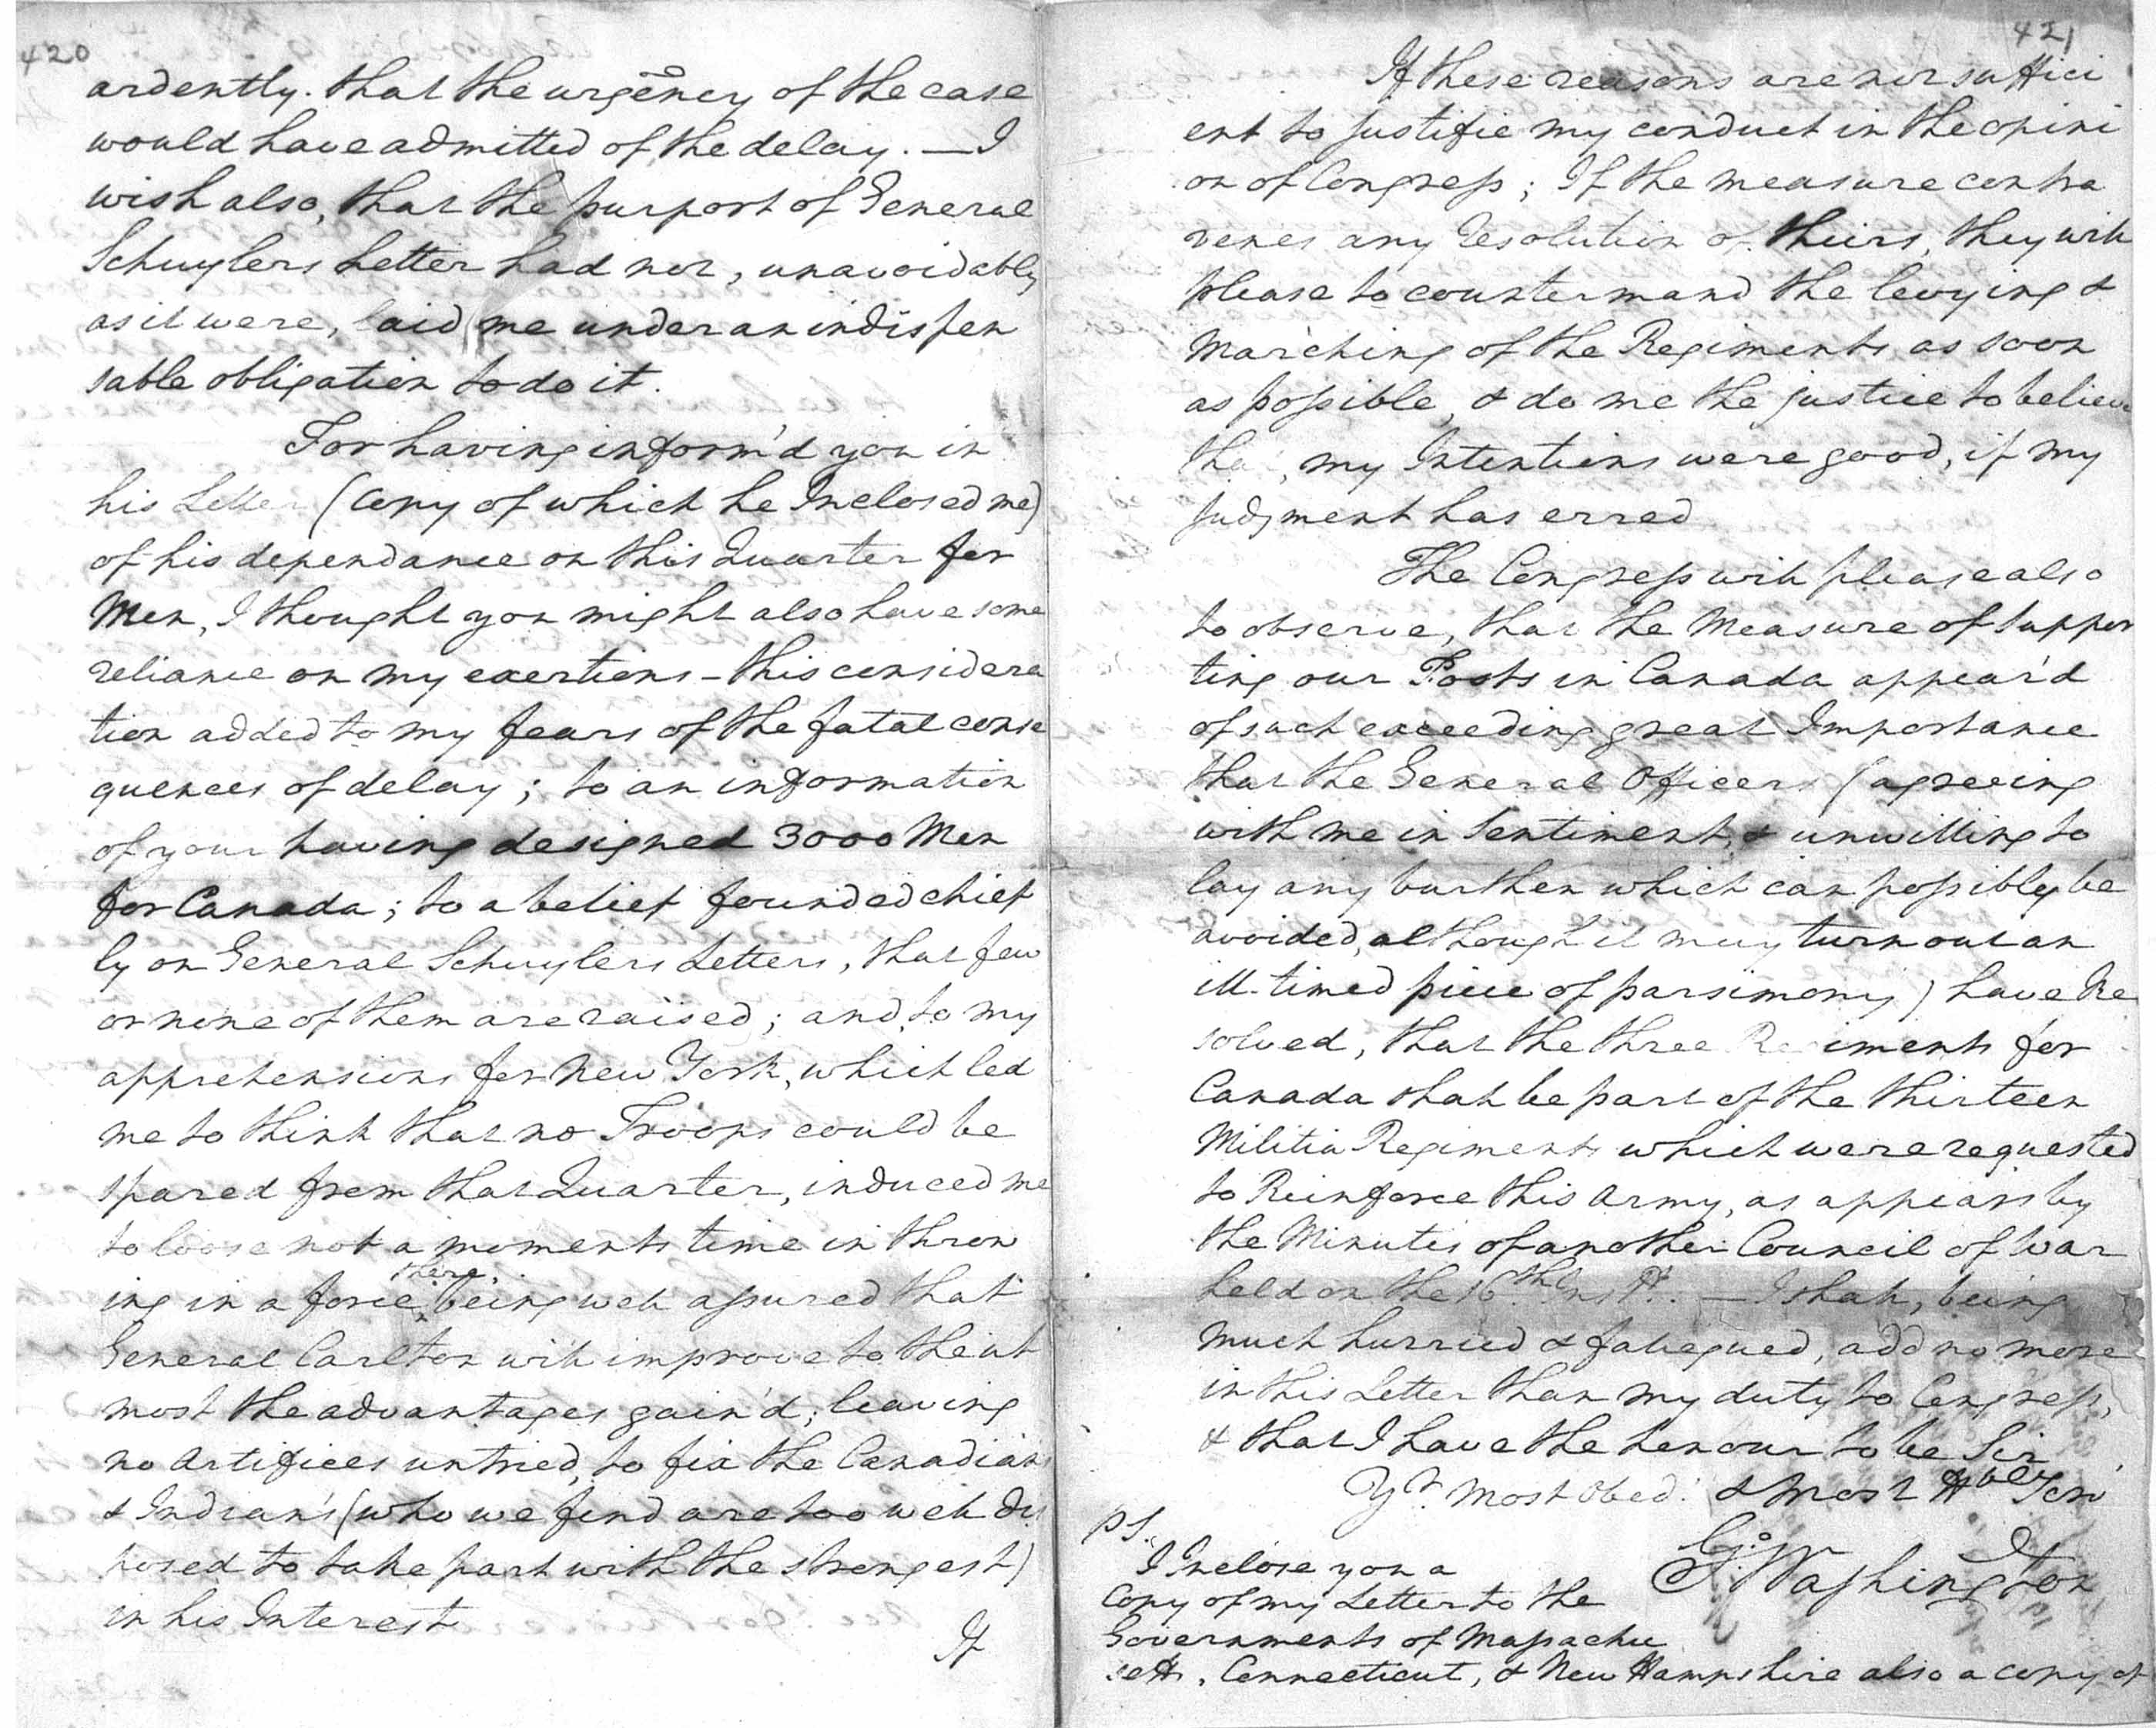 420
ardently. that the urgency of the case
would have admitted of the delay. — I
wish also, that the purport of General
Schuylers Letter had not, unavoidably
as it were, laid me under an indispen
sable obligation to do it.
For having inform'd you in
his Letter (Copy of which he Inclosed me)
of his dependance on this Quarter for
Men, I thought you might also have some
reliance on my exertions – this considera
tion added to my fears of the fatal conse
quences of delay; to an information
of your having designed 3000 Men
for Canada; to a belief founded chief
ly on General Schuylers Letters, that few
or none of them are raised; and, to my
apprehensions for New York, which led
me to think that no Troops could be
spared from that Quarter, induced me
to loose not a moments time in throw
ing in a force there, being well assured that
General Carlton will improve to the ut
most the advantages gain'd; leaving
no Artifices untried, to fix the Canadians
& Indian's (who we find are too well dis
posed to take part with the strongest)
in his Interest
If
421
If these reasons are not suffici
ent to justifie my conduct in the opini
on of Congress; If the measure contra
venes any Resolution of theirs, they will
please to countermand the levying &
Marching of the Regiments as soon
as possible, & do me the justice to believe
that, my Intentions were good, if my
judgment has erred
The Congress will please also
to observe, that the Measure of suppor
ting our Posts in Canada appear'd
of such exceeding great Importance
that the General Officers (agreeing
with me in Sentiment, & unwilling to
lay any burthen which can possibly be
avoided, although it may turn out an
ill-timed piece of parsimony) have Re
solved, that the three Regiments for
Canada shall be part of the thirteen
Militia Regiments which were requested
to Reinforce this Army, as appears by
the Minutes of another Council of War
held on the 16th Instt. — I shall, being
much hurried & fatiegued, add no more
in this Letter than my duty to Congress,
& that I have the honour to be Sir
Yr. Most Obed. & most Hble Serv
Go: Washington
PS.
I Inclose you a
Copy of my Letter to the
Governments of Massachu
setts, Connecticut, & New Hampshire also a copy of